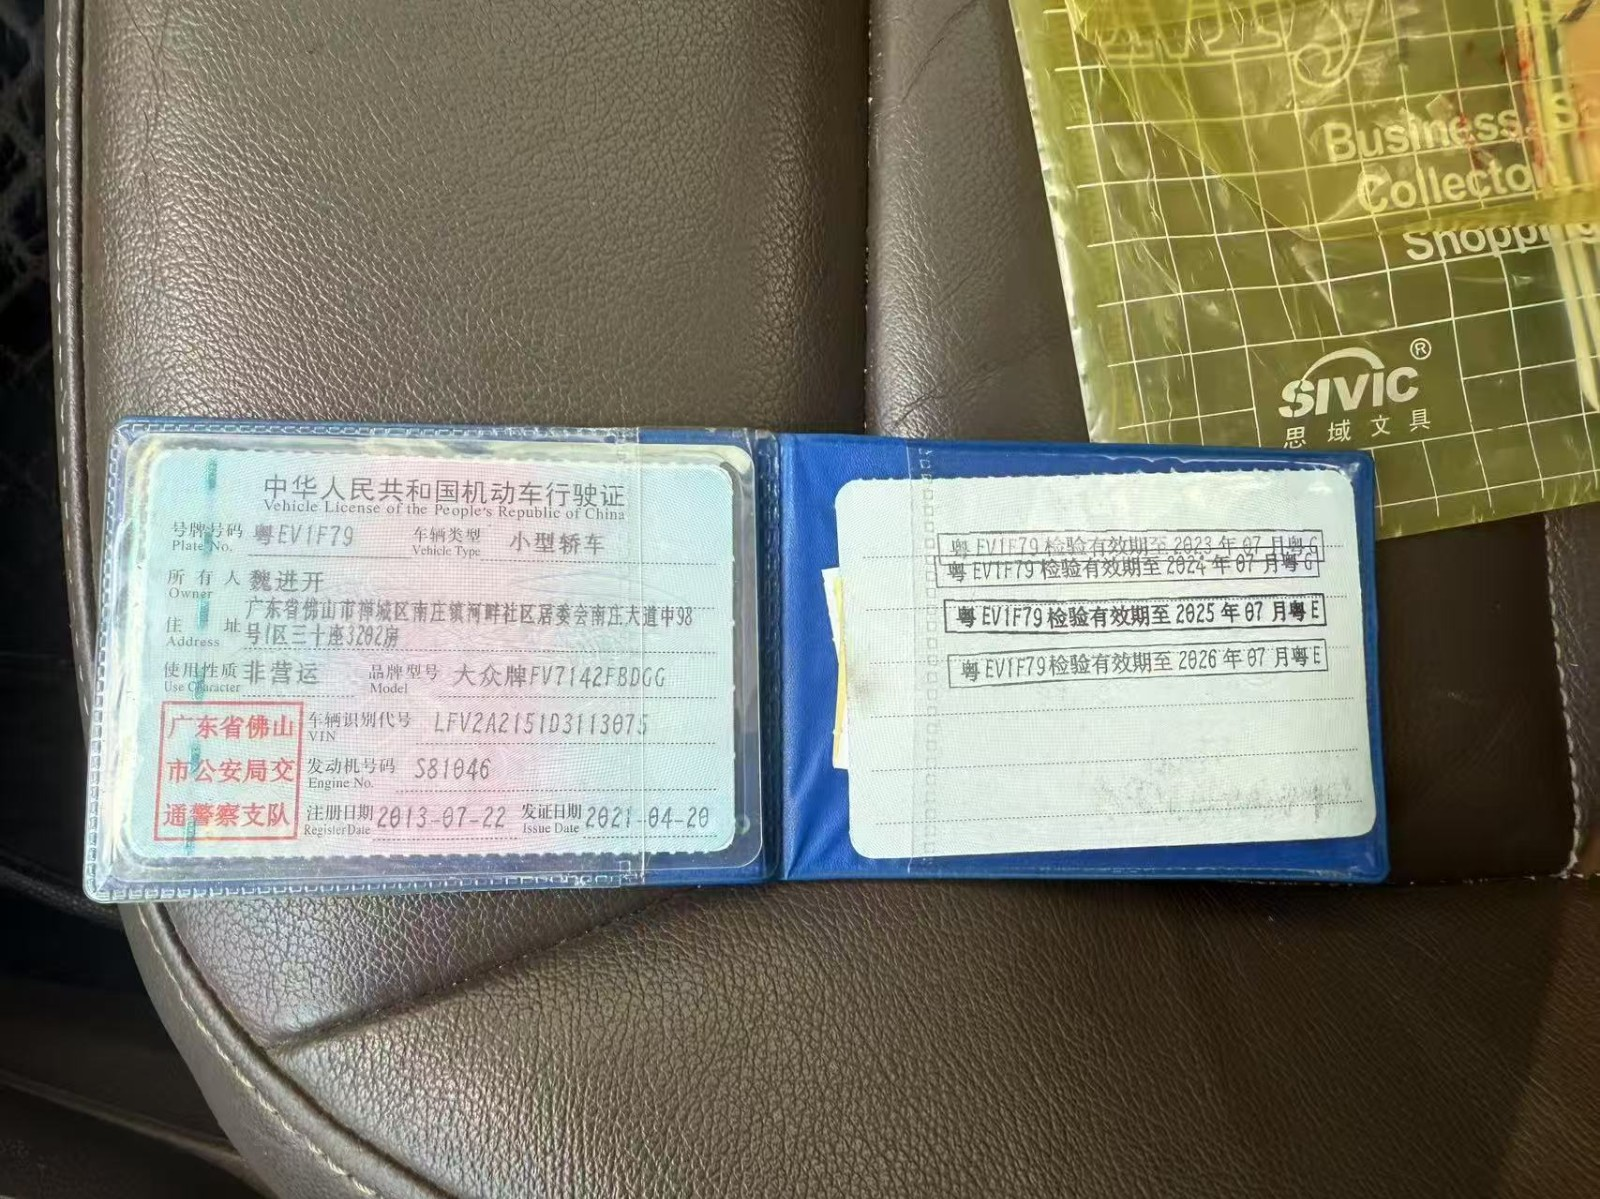 Business
Collector
Shopping
SIVIC®
思域文具
中华人民共和国机动车行驶证
Vehicle License of the People's Republic of China
号牌号码 粤EV1F79 车辆类型 小型轿车
Plate No. Vehicle Type
所有人 魏进开
Owner
住址 广东省佛山市禅城区南庄镇河畔社区居委会南庄大道中98
Address 号1区三十座3202房
使用性质 非营运 品牌型号 大众牌FV7142FBDGG
Use Character Model
广东省佛山
市公安局交
通警察支队
车辆识别代号 LFV2A2151D3113075
VIN
发动机号码 S81046
Engine No.
注册日期 2013-07-22 发证日期 2021-04-20
Register Date Issue Date
粤EV1F79检验有效期至2023年07月粤G
粤EV1F79检验有效期至2024年07月粤G
粤EV1F79检验有效期至2025年07月粤E
粤EV1F79检验有效期至2026年07月粤E